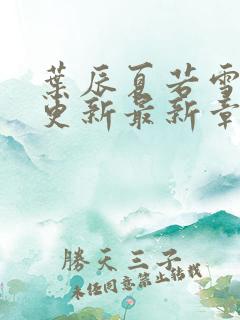 葉辰夏若雪
更新最新章
勝天三子
未经同意禁止转载